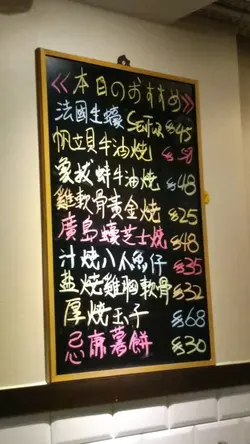 《本日のおすすめ》
法國生蠔 $45
帆立貝牛油焼 $58
象拔蚌牛油焼 $48
雞軟骨黃金燒 $25
廣島蠔芝士燒 $48
汁燒八爪魚仔 $35
盐燒雞胸軟骨 $32
厚燒玉子 $68
忌廉薯餅 $30